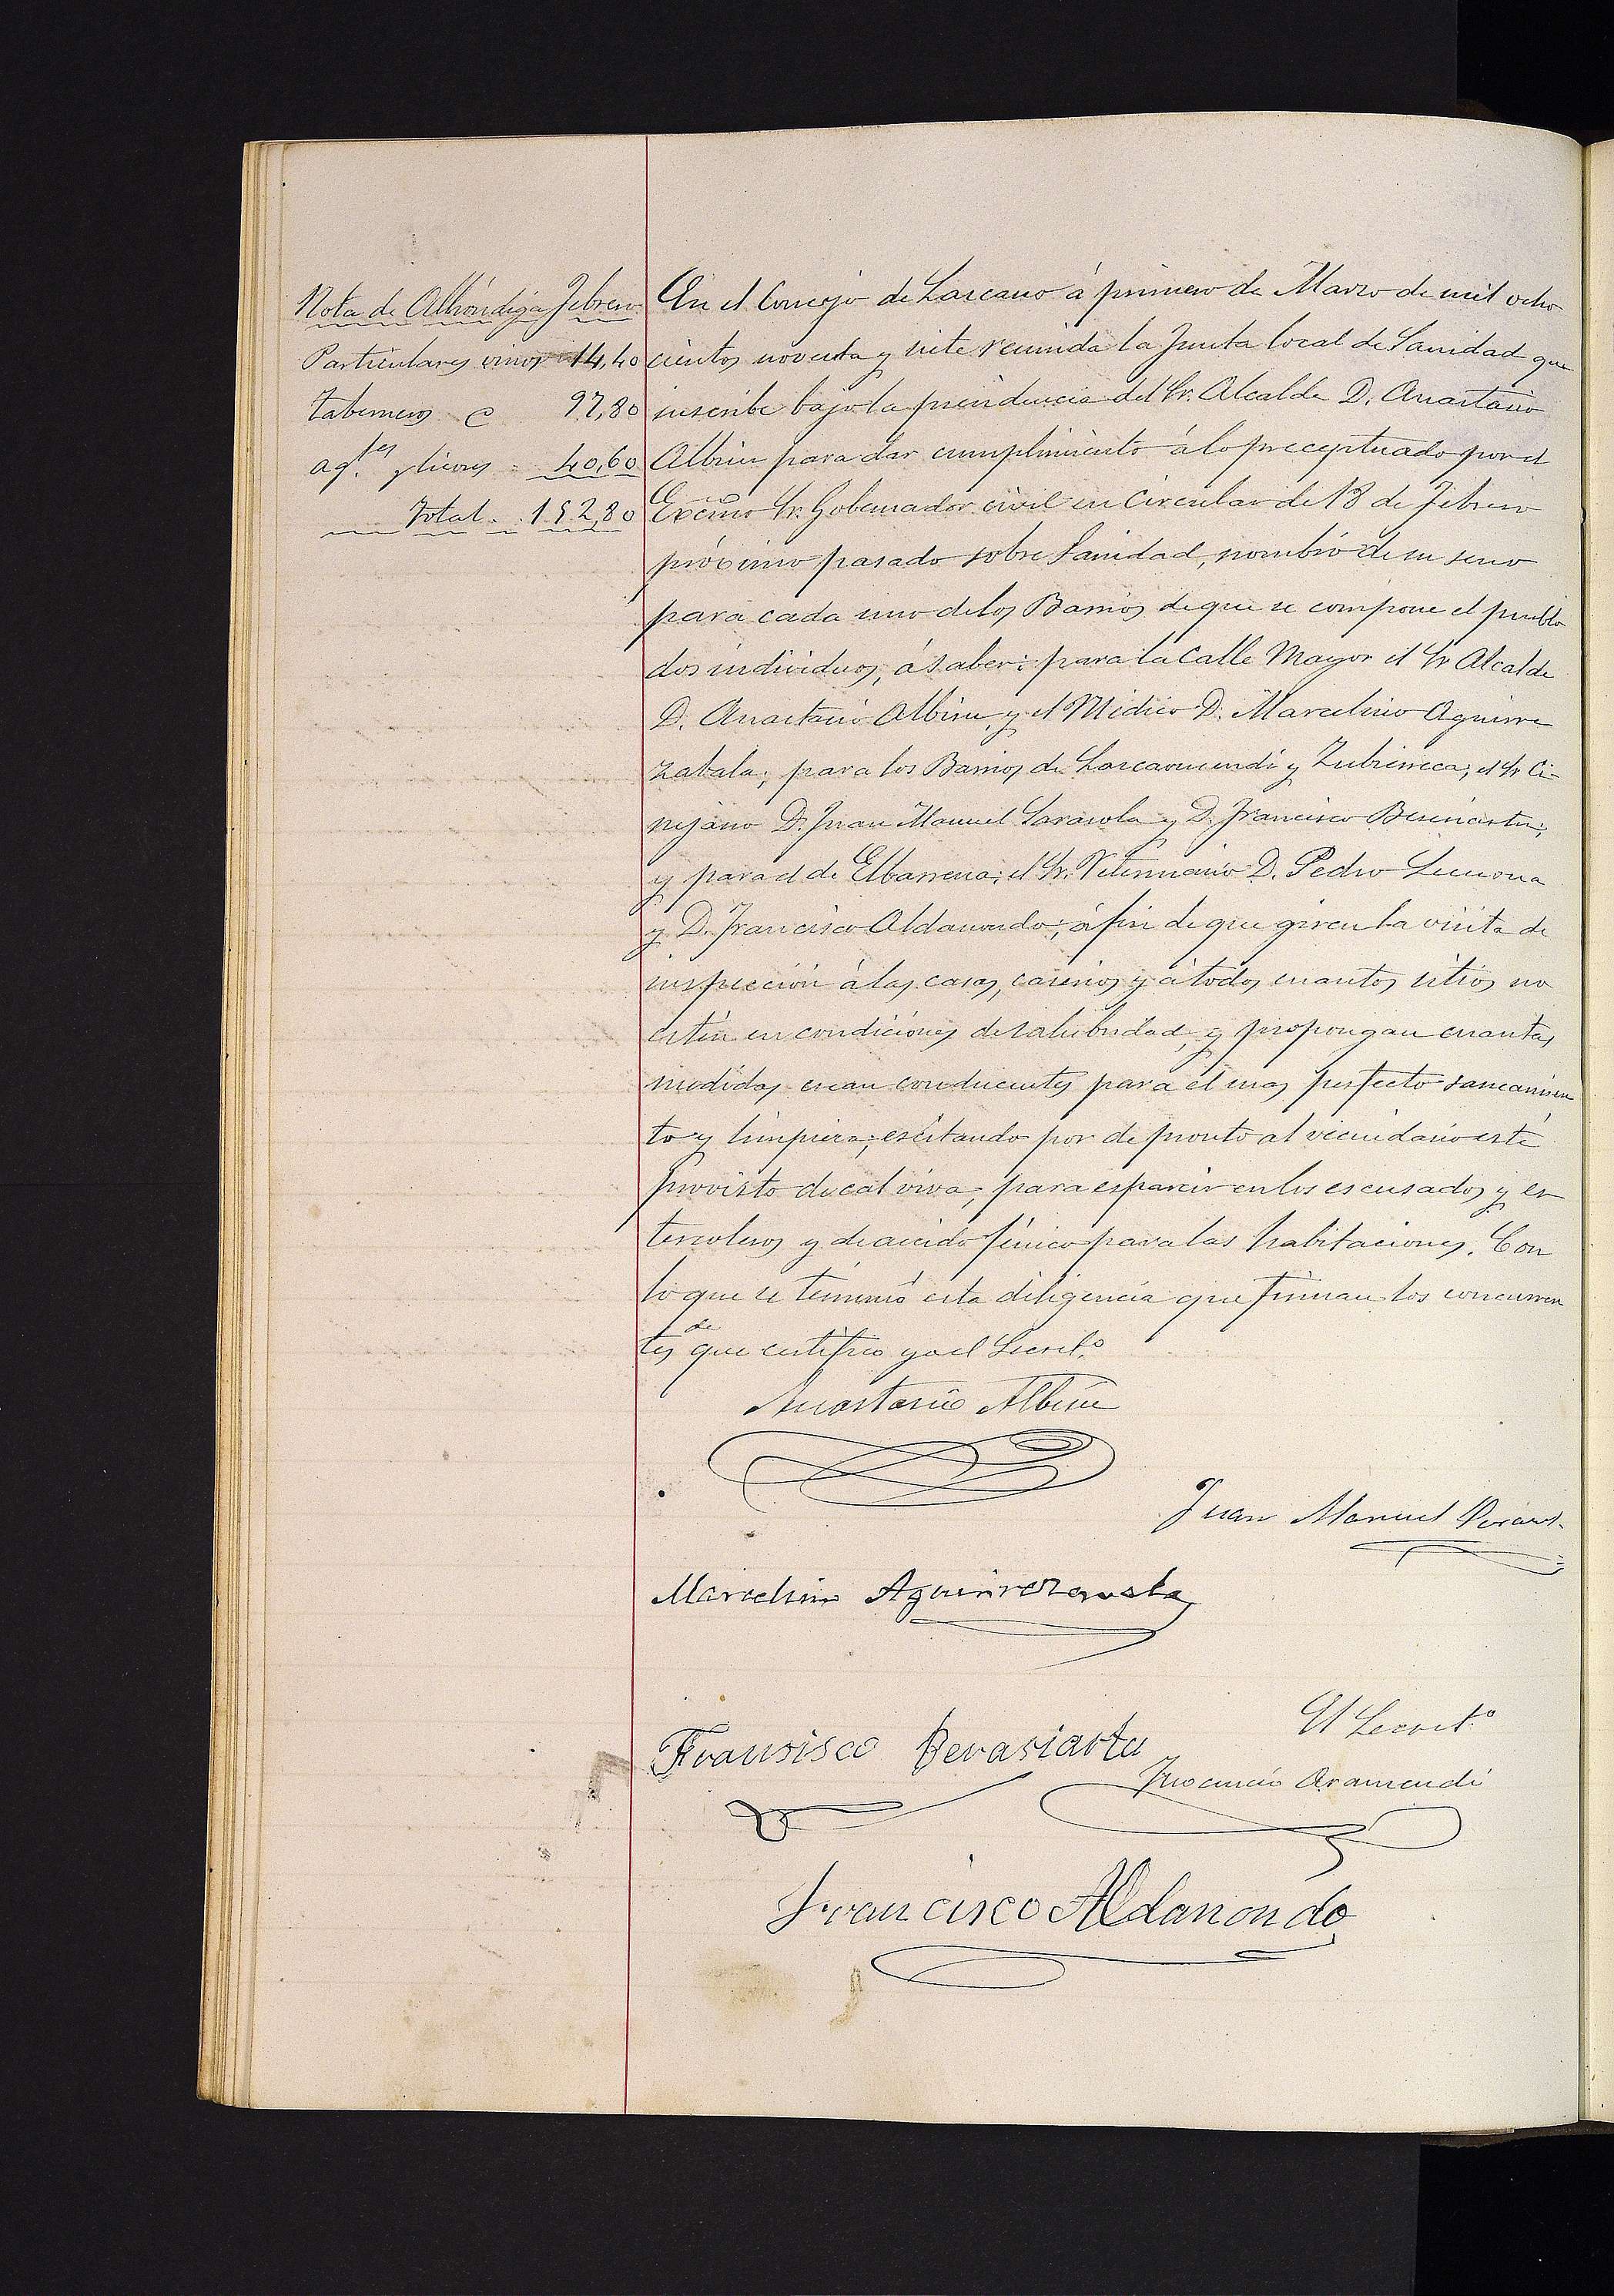 Nota de Alhóndiga Febrero
Particulares vinos 14,40
Taberneros C 97,80
agtes y licores = 40,60
Total . . 152,80
En el Concejo de Lazcano á primero de Marzo de mil ocho
cientos noventa y siete reunida la Junta local de Sanidad que
suscribe bajo la presidencia del Sr. Alcalde D. Anastasio
Albisu para dar cumplimiento á lo preceptuado por el
Excmo Sr. Gobernador civil en Circular de 18 de Febrero
próximo pasado sobre Sanidad, nombró de su seno
para cada uno de los Barrios de que se compone el pueblo
dos individuos, á saber: para la Calle Mayor el Sr Alcalde
D. Anastasio Albisu, y el Médico D. Marcelino Aguirre
zabala; para los Barrios de Lazcaomendi y Zubierreca; el Sr Ci-
rujano D. Juan Manuel Sarasola y D. Francisco Berasiartu;
y para el de Elbarrena; el Sr. Veterinario D. Pedro Lecuona
y D. Francisco Aldanondo; á fin de que giren la visita de
inspección á las casas, caserios y á todos cuantos sitios no
estén en condiciones de salubridad, y propongan cuantas
medidas crean conducentes para el mas perfecto saneamien
to y limpieza; escitando por de pronto al vecindario esté
provisto de cal viva, para esparcir en los escusados y es
tercoleros y de acido fénico para las habitaciones. Con
lo que se terminó esta diligencia que firman los concurren
tes de que certifico yo el Secreto
Anastasio Albisu
Juan Manuel Sarasol.
Marcelino Aguirrezavala
Fransisco Berasiartu
El Secreto
Inocencio Aramendi
Francisco Aldanondo